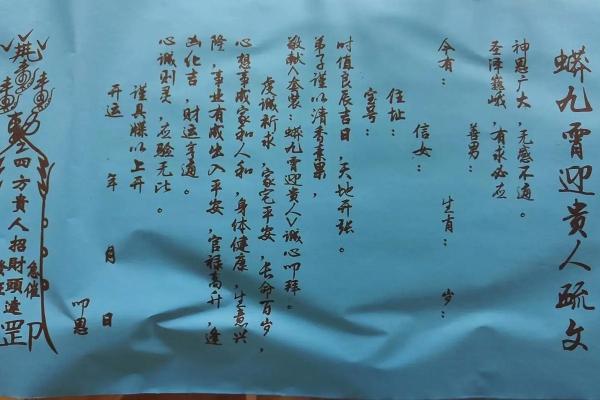 蟒九霄迎貴人疏文
神恩广大，无感不通。
圣泽巍峨，有求必应
善男：
今有： 生肖： 岁：
信女：
住址：
宝号：
时值良辰吉日，天地开张。
弟子谨以清香素果，
敬献《套装：蟒九霄迎貴人》诚心叩拜。
虔诚祈求，家宅平安，长命百岁，
心想事成家和人和，身体健康，生意兴
隆，事业有成出入平安，官禄高升，逢
凶化吉，财运亨通。
心诚则灵，应验无比。
谨具牒以上升
开运 年 月 日
叩恩
四方貴人招財頭造罡
急催